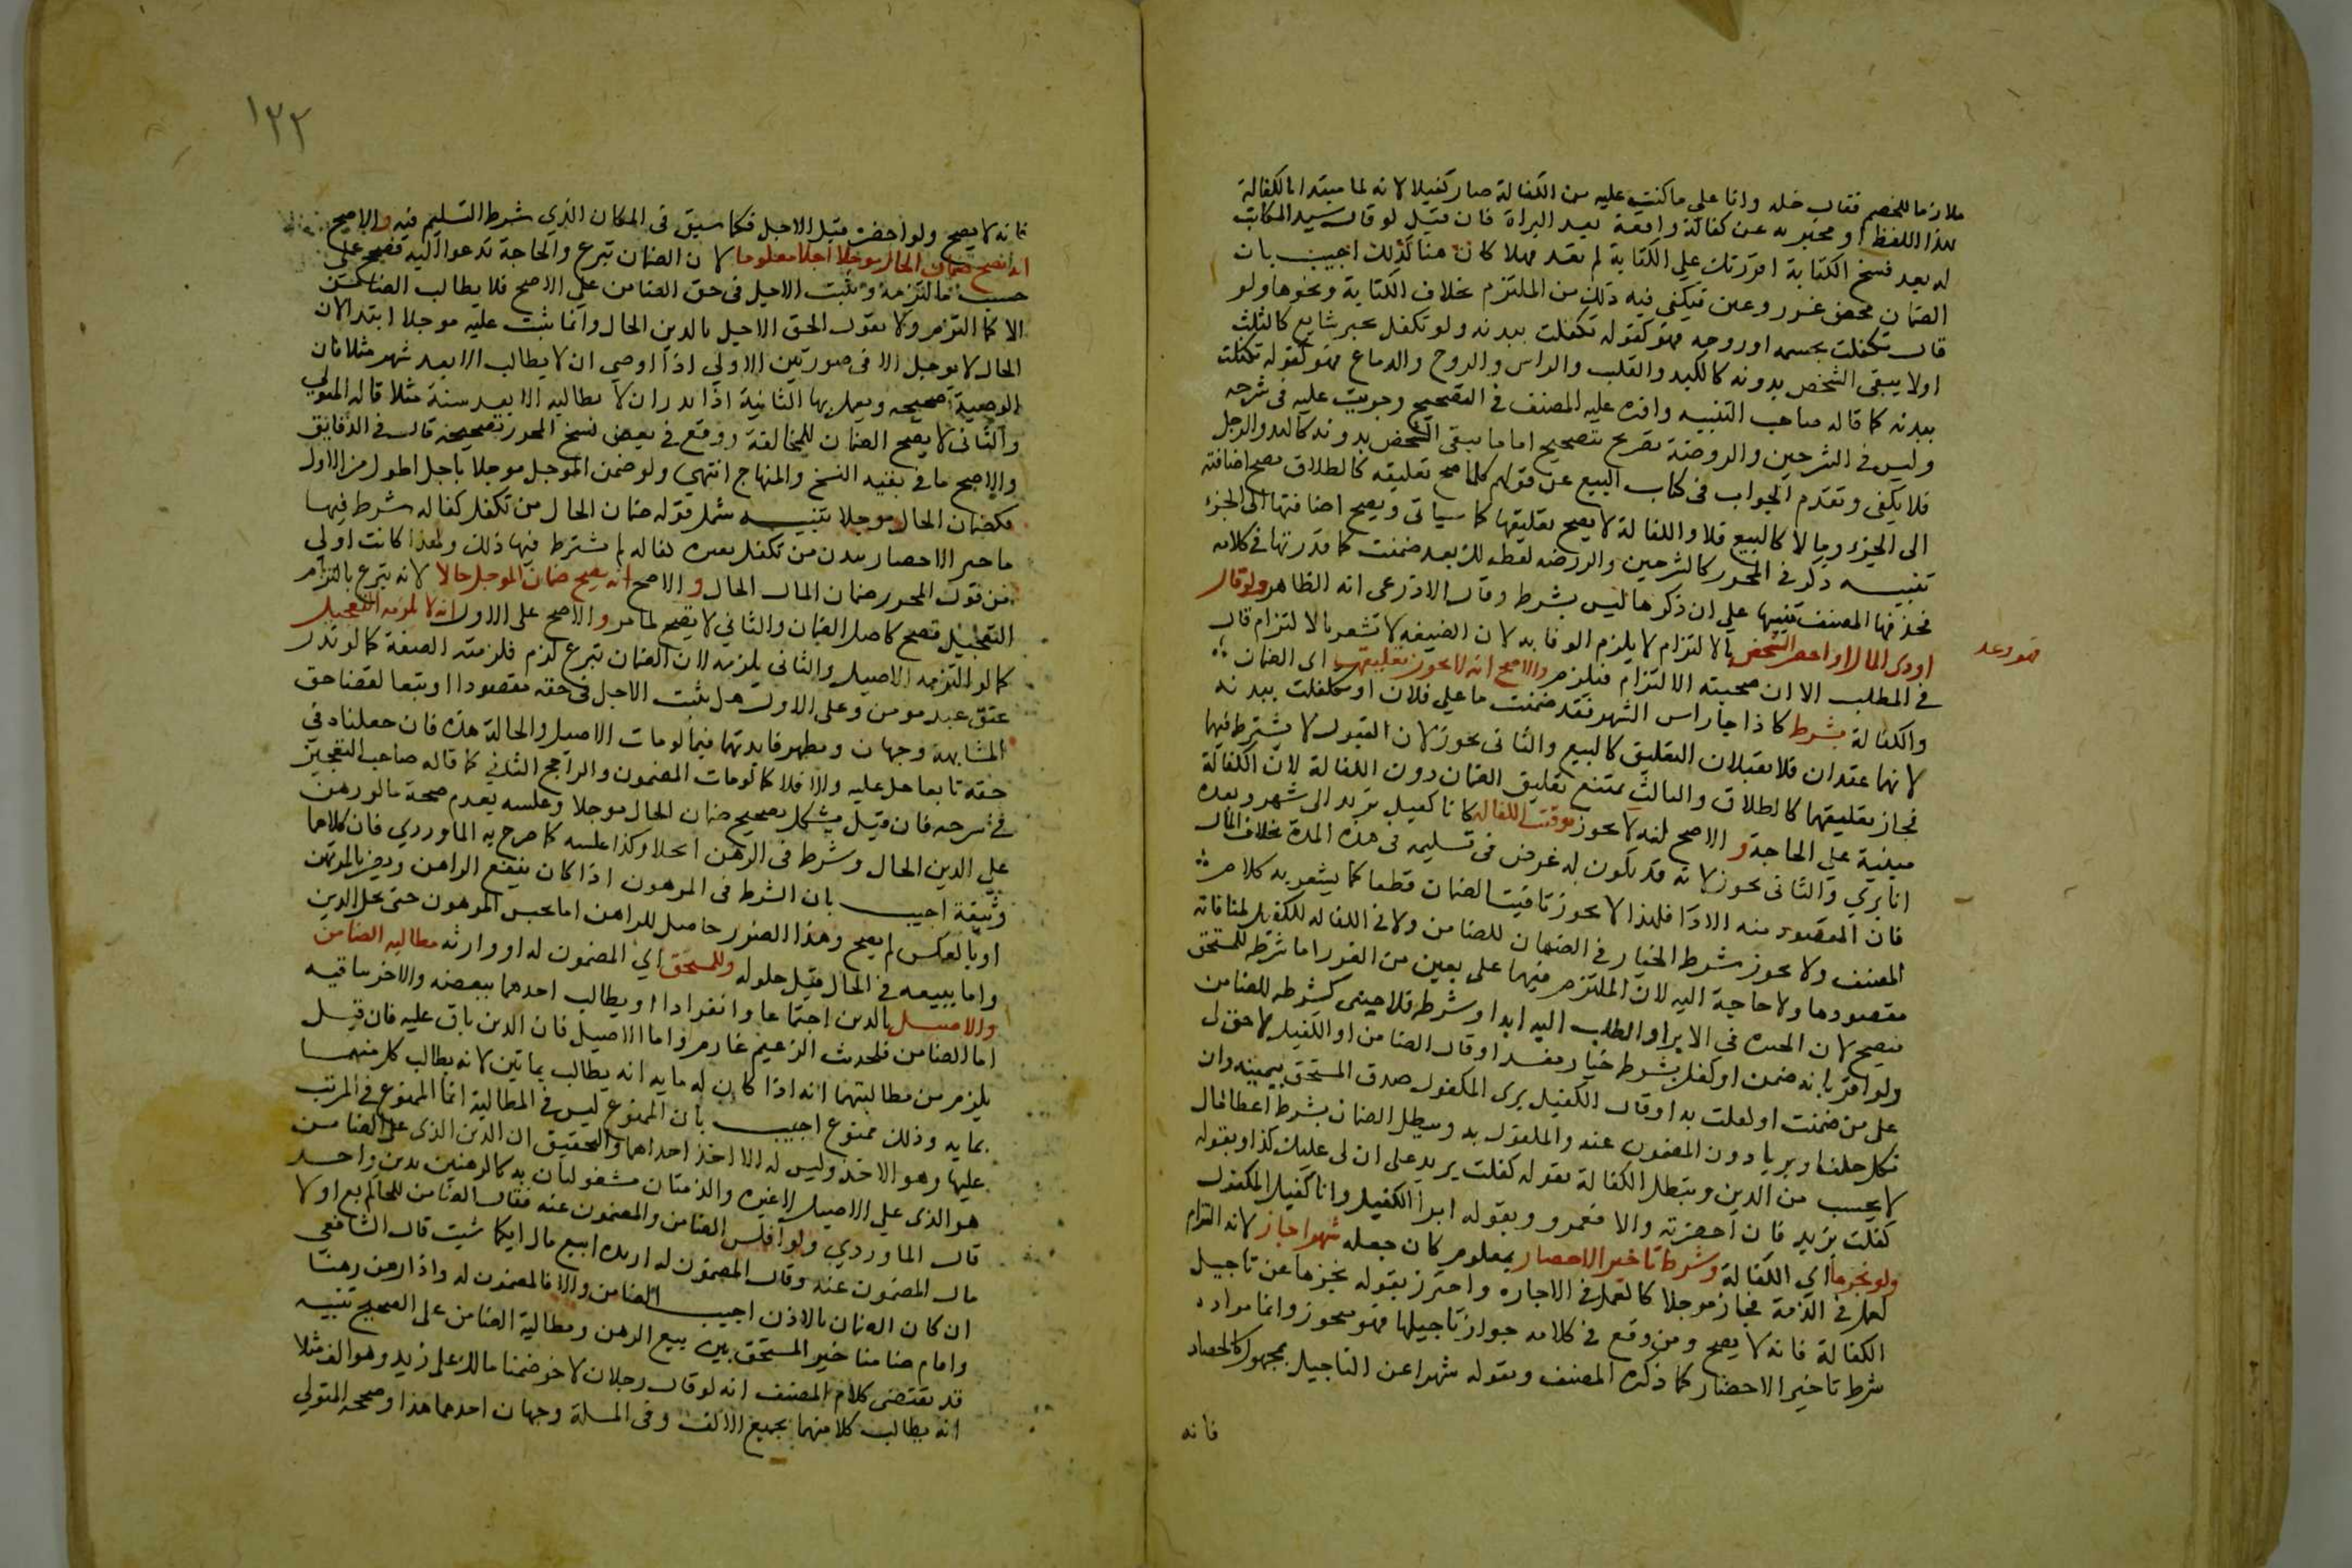 ملازما للخصم فقال خله وانا علي ما كنت عليه من الكفالة صار كفيلا لانه اما مبتدا بالكفالة
بهذا اللفظ او مخبر به عن كفالة واقعة بعد البراة فان قيل لو قال سيد المكاتب
له بعد فسخ الكتابة اقررتك علي الكتابة لم تعد فهلا كان هنا كذلك اجيب بان
الضمان محض غرر وغبن فيكفي فيه ذلك من الملتزم بخلاف الكتابة ونحوها ولو
قال تكفلت بجسمه او روحه فهو كقوله تكفلت ببدنه ولو تكفل بجزء شايع كالثلث
او لا يبقى الشخص بدونه كالكبد والقلب والراس والروح والدماغ فهو كقوله تكفلت
ببدنه كما قاله صاحب التنبيه واقره عليه المصنف في التصحيح وجريت عليه في شرحه
وليس في الشرحين والروضة تصريح بتصحيح اما ما يبقى الشخص بدونه كاليد والرجل
فلا يكفي وتقدم الجواب في كتاب البيع عن قولهم كلما صح تعليقه كالطلاق صح اضافته
الى الجزء وما لا كالبيع فلا والكفالة لا يصح تعليقها كما سياتي ويصح اضافتها الى الجزء
تنبيه ذكر في المحرر كالشرحين والروضه لفظه لك بعد ضمنت كما قدرتها في كلامه
فحذفها المصنف تنبيها علي ان ذكرها ليس بشرط وقال الاذرعي انه الظاهر ولو قال
اودي المال او احضر الشخص فهو وعد بالالتزام لا يلزم الوفا به لان الصيغه لا تشعر بالالتزام قال
في المطلب الا ان صحبته الالتزام فيلزم والاصح انه لا يجوز تعليقهما اي الضمان
والكفالة بشرط كاذا جا راس الشهر فقد ضمنت ما علي فلان او تكفلت ببدنه
لانهما عقدان فلا يقبلان التعليق كالبيع والثاني يجوز لان القبول لا يشترط فيهما
فجاز تعليقهما كالطلاق والثالث يمتنع تعليق الضمان دون الكفالة لان الكفالة
مبنية علي الحاجة و الاصح انه لا يجوز توقيت الكفالة كانا كفيل بزيد الى شهر وبعده
انا بري والثاني يجوز لانه قد يكون له غرض في تسليمه في هذه المدة بخلاف المال
فان المقصود منه الادا فلهذا لا يجوز تاقيت الضمان قطعا كما يشعر به كلام
المصنف ولا يجوز شرط الخيار في الضمان للضامن ولا في الكفالة للكفيل لمنافاته
مقصودهما ولا حاجة اليه لان الملتزم فيهما على يقين من الغرر اما شرطه للمستحق
فيصح لان الخيرة في الابراء والطلب اليه ابدا وشرطه للاجنبي كشرطه للضامن
ولو اقر بانه ضمن او كفل بشرط خيار مفسد او قال الضامن او الكفيل لا حق لك
علي من ضمنت او كفلت به او قال الكفيل بري المكفول صدق المستحق بيمينه وان
نكل حلفا وبريا دون المضمون عنه والمكفول به ويبطل الضمان بشرط اعطا مال
لا يحسب من الدين وتبطل الكفالة بقوله كفلت بزيد على ان لي عليك كذا وبقوله
كفلت بزيد فان احضرته والا فعمرو وبقوله ابرا الكفيل وانا كفيل المكفول
ولو نجزها اي الكفالة وشرط تاخير الاحضار بمعلوم كان جعله شهرا جاز لانه التزام
لعمل في الذمة فجاز موجلا كالعمل في الاجاره واحترز بقوله نجزها عن تاجيل
الكفالة فانه لا يصح ومن وقع في كلامه جواز تاجيلها فهو متجوز وانما مراده
شرط تاخير الاحضار كما ذكره المصنف وبقوله شهرا عن التاجيل بمجهول كالحصاد
فانه
١٢٢
فانه لا يصح ولو احضره قبل الاجل فكما سبق في المكان الذي شرط التسليم فيه والاصح
انه يصح ضمان الحال موجلا اجلا معلوما لان الضمان تبرع والحاجة تدعوا اليه فصح علي
حسب ما التزمه وثبت الاجل في حق الضامن علي الاصح فلا يطالب الضامن
الا كما التزم ولا نقول التحق الاجل بالدين الحال وانما ثبت عليه موجلا ابتدا لان
الحال لا يوجل الا في صورتين الاولي اذا اوصي ان لا يطالب الا بعد شهر مثلا فان
الوصية صحيحه ويعمل بها الثانية اذا نذر ان لا يطالبه الا بعد سنة مثلا قاله المتولي
والثاني لا يصح الضمان للمخالفة ووقع في بعض نسخ المحرر تصحيحه قال في الدقايق
والاصح ما في بقية النسخ والمنهاج انتهى ولو ضمن الموجل موجلا باجل اطول من الاول
فكضمان الحال موجلا تنبيه شمل قوله ضمان الحال من تكفل كفاله شرط فيها
تاخير الاحضار ببدن من تكفل بغيره كفاله لم يشترط فيها ذلك ولهذا كانت اولي
من قول المحرر ضمان المال الحال و الاصح انه يصح ضمان الموجل حالا لانه تبرع بالتزام
التعجيل فصح كاصل الضمان والثاني لا يصح لما مر والاصح على الاول انه لا يلزمه التعجيل
كما لو التزمه الاصيل والثاني يلزمه لان الضمان تبرع لزم فلزمته الصفة كما لو نذر
عتق عبد مومن وعلى الاول هل يثبت الاجل في حقه مقصودا او تبعا لقضا حق
المشابهة وجهان وتظهر فايدتهما فيما لو مات الاصيل والحالة هذه فان جعلناه في
حقه تابعا حل عليه والا فلا كما لو مات المضمون والراجح الثاني كما قاله صاحب التعجيز
في شرحه فان قيل يشكل تصحيح ضمان الحال موجلا وعكسه بعدم صحة ما لو رهن
علي الدين الحال وشرط في الرهن اجلا وكذا عكسه كما صرح به الماوردي فان كلاهما
وثيقة اجيب بان الشرط في المرهون اذا كان ينفع الراهن ويضر بالمرتهن
او بالعكس لم يصح وهذا الضرر حاصل للراهن اما بحبس المرهون حتى يحل الدين
واما ببيعه في الحال قبل حلوله وللمستحق اي المضمون له او وارثه مطالبة الضامن
والاصيل بالدين اجتماعا وانفرادا او يطالب احدهما ببعضه والاخر بباقيه
اما الضامن فلحديث الزعيم غارم واما الاصيل فان الدين باق عليه فان قيل
يلزم من مطالبتهما انه اذا كان له مايه انه يطالب بمايتين لانه يطالب كل منهما
بمايه وذلك ممنوع اجيب بان الممنوع ليس في المطالبة انما الممنوع في المرتب
عليها وهو الاخذ وليس له الا اخذ احداهما والتحقيق ان الدين الذي على الضامن
هو الذي علي الاصيل لا غيره والذمتان مشغولتان به كالرهنين بدين واحد
قال الماوردي ولو افلس الضامن والمضمون عنه فقال الضامن للحاكم بع اولا
مال المضمون عنه وقال المضمون له اريد ابيع مال ايكما شيت قال الشافعي
ان كان الضمان بالاذن اجيب الضامن والا فالمضمون له واذا رهن رهنا
واقام ضامنا خير المستحق بين بيع الرهن ومطالبة الضامن على الصحيح تنبيه
قد يقتضي كلام المصنف انه لو قال رجلان لاخر ضمنا مالك على زيد وهو الف مثلا
انه يطالب كلا منهما بجميع الالف وفي المسلة وجهان احدهما هذا وصححه المتولي